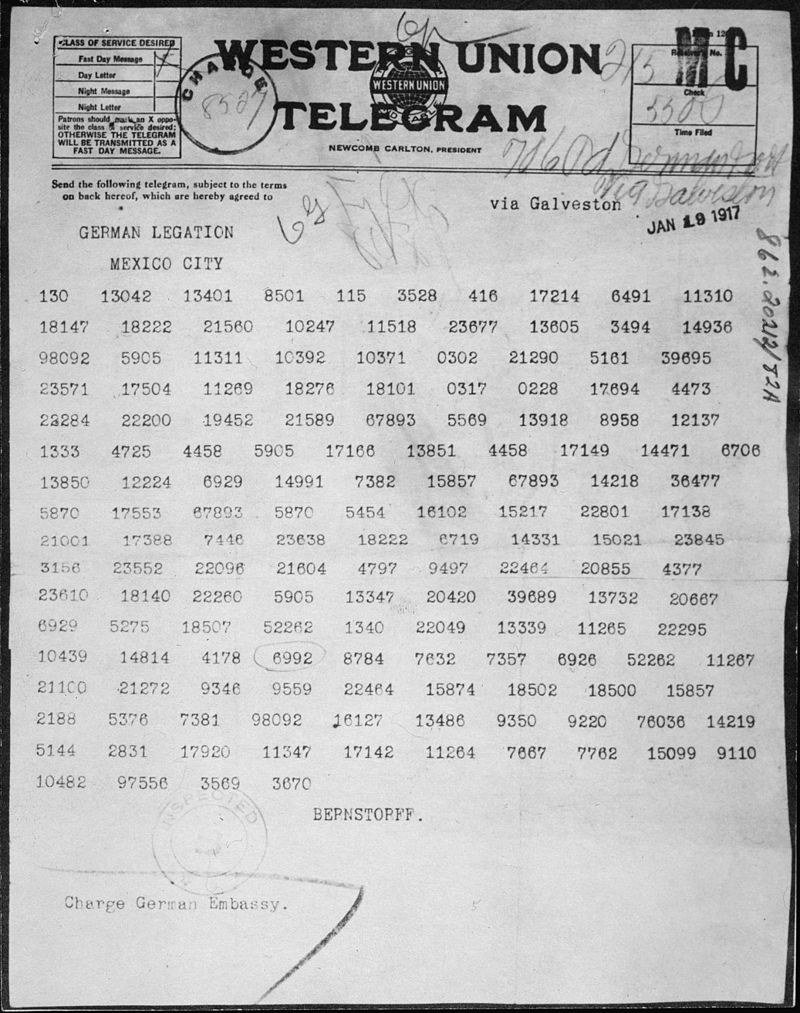 CLASS OF SERVICE DESIRED
Fast Day Message X
Day Letter
Night Message
Night Letter
Patrons should mark an X oppo-
site the class of service desired:
OTHERWISE THE TELEGRAM
WILL BE TRANSMITTED AS A
FAST DAY MESSAGE.
CHARGE
WESTERN UNION
WESTERN UNION
TELEGRAM
NEWCOMB CARLTON, PRESIDENT
215
MC
Receiver's No.
Check
Time Filed
Send the following telegram, subject to the terms
on back hereof, which are hereby agreed to
via Galveston
via Galveston
JAN 19 1917
862.20212/82A
GERMAN LEGATION
MEXICO CITY
130 13042 13401 8501 115 3528 416 17214 6491 11310
18147 18222 21560 10247 11518 23677 13605 3494 14936
98092 5905 11311 10392 10371 0302 21290 5161 39695
23571 17504 11269 18276 18101 0317 0228 17694 4473
22284 22200 19452 21589 67893 5569 13918 8958 12137
1333 4725 4458 5905 17166 13851 4458 17149 14471 6706
13850 12224 6929 14991 7382 15857 67893 14218 36477
5870 17553 67893 5870 5454 16102 15217 22801 17138
21001 17388 7446 23638 18222 6719 14331 15021 23845
3156 23552 22096 21604 4797 9497 22464 20855 4377
23610 18140 22260 5905 13347 20420 39689 13732 20667
6929 5275 18507 52262 1340 22049 13339 11265 22295
10439 14814 4178 6992 8784 7632 7357 6926 52262 11267
21100 21272 9346 9559 22464 15874 18502 18500 15857
2188 5376 7381 98092 16127 13486 9350 9220 76036 14219
5144 2831 17920 11347 17142 11264 7667 7762 15099 9110
10482 97556 3569 3670
BERNSTORFF.
INSPECTED
Charge German Embassy.